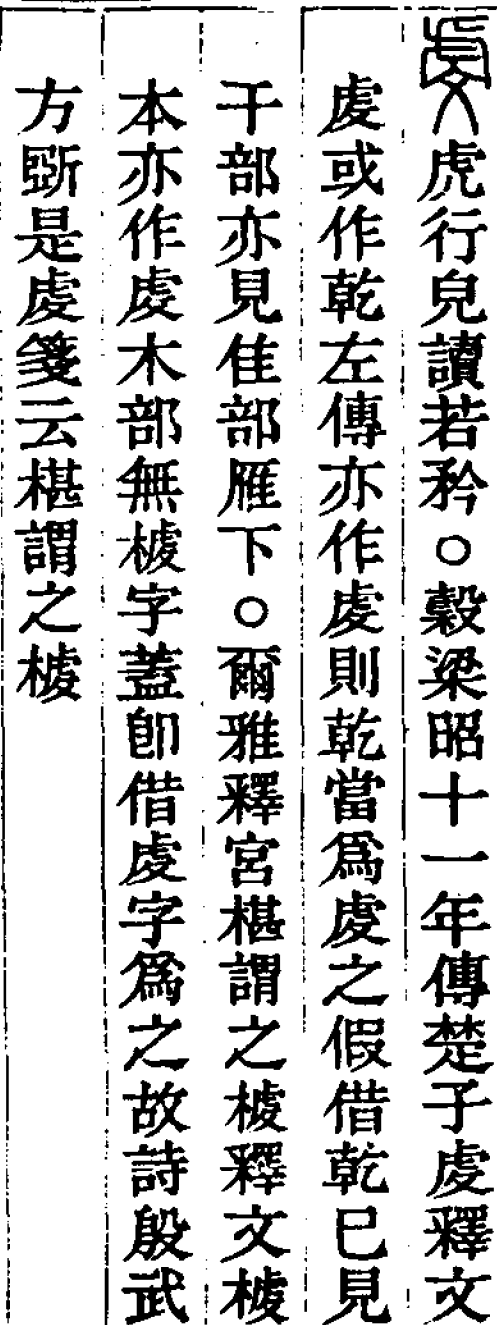 虔虎行皃讀若矜○穀梁昭十一年傳楚子虔釋文
虔或作乾左傳亦作虔則乾當爲虔之假借乾已見
干部亦見隹部雁下○爾雅釋宮椹謂之榩釋文榩
本亦作虔木部無榩字蓋卽借虔字爲之故詩殷武
方斲是虔箋云椹謂之榩